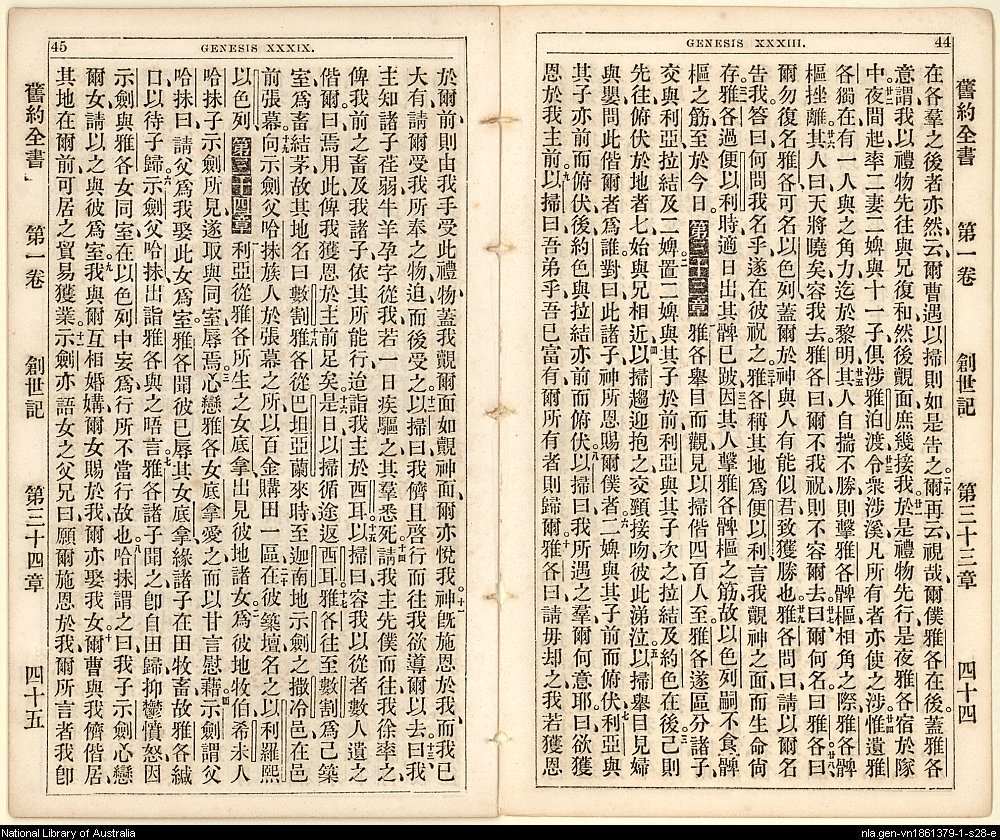 44
GENESIS XXXIII.
舊約全書 第一卷 創世記 第三十三章 四十四
在各羣之後者亦然云爾曹遇以掃則如是告之爾再云視哉爾僕雅各在後蓋雅各
意謂我以禮物先往與兄復和然後覿面庶幾接我於是禮物先行是夜雅各宿於隊
中夜間起率二妻二婢與十一子俱涉雅泊渡令衆涉溪凡所有者亦使之涉惟遺雅
各獨在有一人與之角力迄於黎明其人自揣不勝則擊雅各髀樞相角之際雅各髀
樞挫離其人曰天將曉矣容我去雅各曰爾不我祝則不容爾去曰爾何名曰雅各曰
爾勿復名雅各可名以色列蓋爾於神與人有能似君致獲勝也雅各問曰請以爾名
告我答曰何問我名乎遂在彼祝之雅各稱其地爲便以利言我覿神之面而生命尙
存雅各過便以利時適日出其髀已跛因其人擊雅各髀樞之筋故以色列嗣不食髀
樞之筋至於今日第三十三章雅各舉目而觀見以掃偕四百人至雅各遂區分諸子
交與利亞拉結及二婢置二婢與其子於前利亞與其子次之拉結及約色在後己則
先往俯伏於地者七始與兄相近以掃趨迎抱之交頸接吻彼此涕泣以掃舉目見婦
與嬰問此偕爾者爲誰對曰此諸子神所恩賜爾僕者二婢與其子前而俯伏利亞與
其子亦前而俯伏後約色與拉結亦前而俯伏以掃曰我所遇之羣爾何意耶曰欲獲
恩於我主前以掃曰吾弟乎吾已富有爾所有者則歸爾雅各曰請毋却之我若獲恩
45
GENESIS XXXIX.
於爾前則由我手受此禮物蓋我覿爾面如覿神面爾亦悅我神旣施恩於我而我已
大有請爾受我所奉之物迫而後受之以掃曰我儕且啓行而往我欲導爾以去曰我
主知諸子荏弱牛羊孕字從我若一日疾驅之其羣悉死請我主先僕而往我徐率之
俾我前之畜及我諸子依其所能行迨詣我主於西耳以掃曰容我以從者數人遺之
偕爾曰焉用此俾我獲恩於主前足矣是日以掃循途返西耳雅各往至數割爲己築
室爲畜結茅故其地名曰數割雅各從巴坦亞蘭來時至迦南地示劍之撒冷邑在邑
前張幕向示劍父哈抹族人於張幕之所以百金購田一區在彼築壇名之以利羅熙
以色列第三十四章利亞從雅各所生之女底拿出見彼地諸女爲彼地牧伯希未人
哈抹子示劍所見遂取與同室辱焉心戀雅各女底拿愛之而以甘言慰藉示劍謂父
哈抹曰請父爲我娶此女爲室雅各聞彼已辱其女底拿緣諸子在田牧畜故雅各緘
口以待子歸示劍父哈抹出詣雅各與之晤言雅各諸子聞之卽自田歸抑鬱憤怒因
示劍與雅各女同室在以色列中妄爲行所不當行故也哈抹謂之曰我子示劍心戀
爾女請以之與彼爲室我與爾互相婚媾爾女賜於我爾亦娶我女爾曹與我儕偕居
其地在爾前可居之貿易獲業示劍亦語女之父兄曰願爾施恩於我爾所言者我卽
舊約全書 第一卷 創世記 第三十四章 四十五
National Library of Australia
nla.gen-vn1861379-1-s28-e